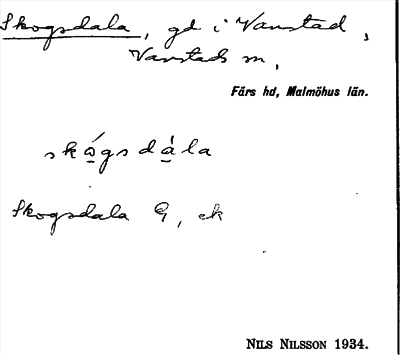 Skogsdala, gd i Vanstad,
Vanstads sn,
Färs hd, Malmöhus län.
skǻgsdàla
Skogsdala G, ek
NILS NILSSON 1934.